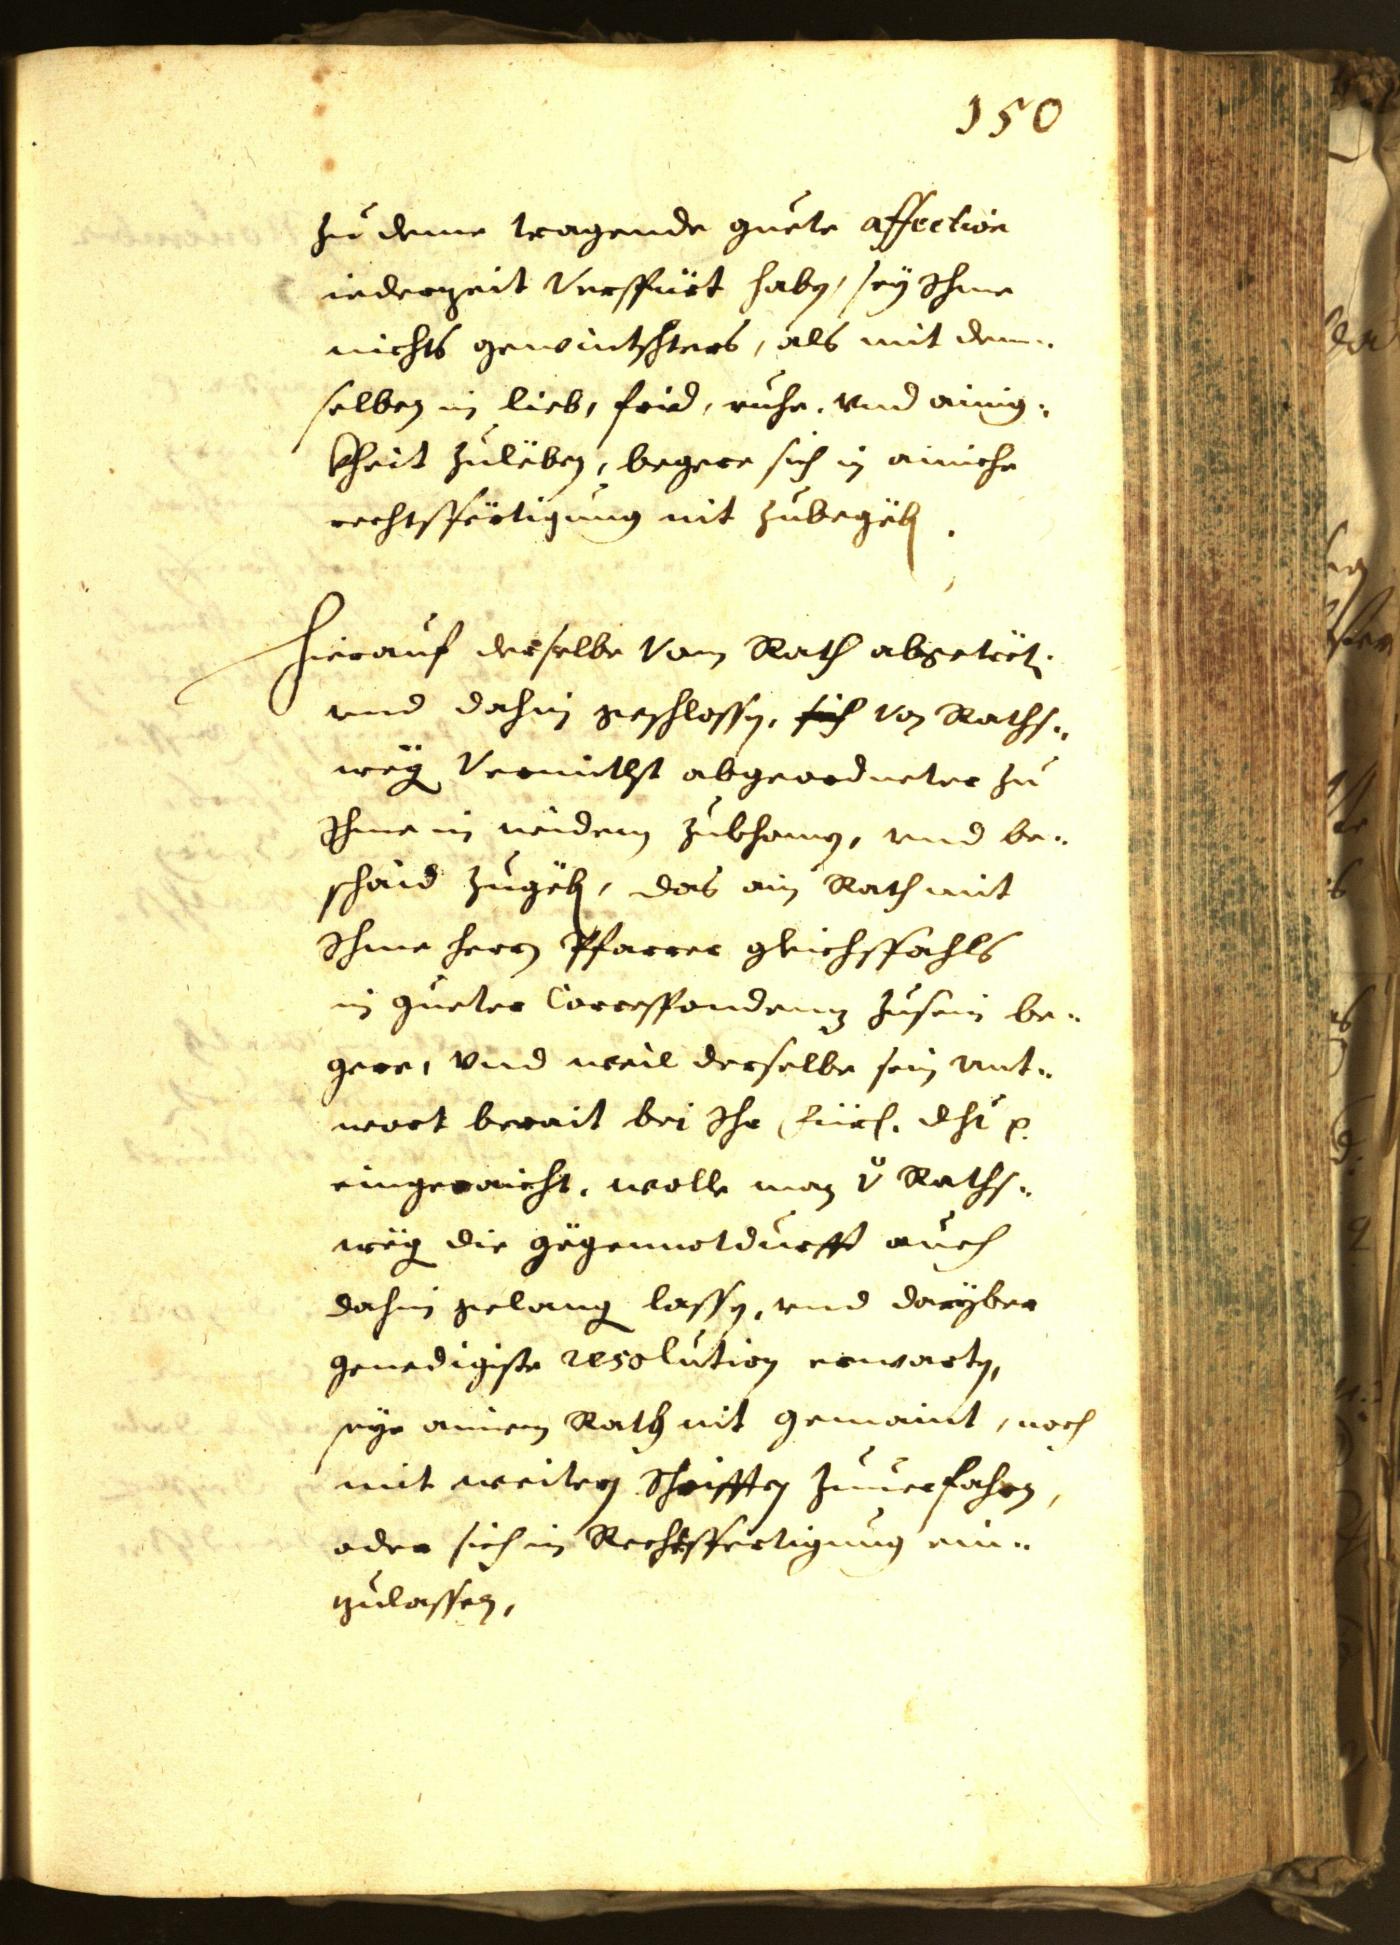 150
zu deme tragende guete affection
iederzeit verspürt haben, sey Ihme
nichts gewintschters, als mit dem¬
selben in lieb, frid, ruhe, vnd ainig¬
kheit zuleben, begere sich in ainiche
rechtsfertigung nit zubegeben.
Hierauf derselbe vom Rath abgetreten
vnd dahin geschlossen, von Raths¬
wegen vermitlst abgeordneter zu
Ihme in widem zukhomen, vnd be¬
schaid zugeben, das ain Rath mit
Ihme herrn Pfarrer gleichsfahls
in gueter Correspondenz zusein be¬
gere, vnd weil derselbe sein Ant¬
wort berait bei Ihr Fürst. dht p.
eingeraicht, wolle man von Raths¬
wegen die gegennotdurfft auch
dahin gelangen lassen, vnd darÿber
genedigiste resolution erwarten,
seye ainem Rath nit gemaint, noch
mit weitern Schrifften zuuerfahren,
oder sich in Rechtsfertigung ein¬
zulassen,